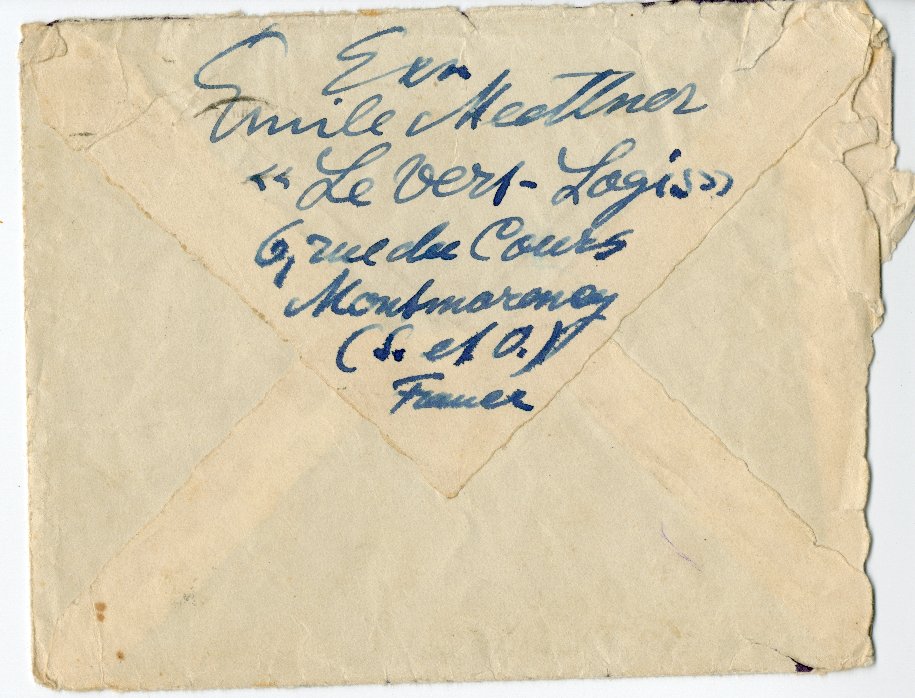 Exp
Emile Medtner
« Le Vert-Logis »
6, rue du Cours
Montmorency
(S. et O.)
France